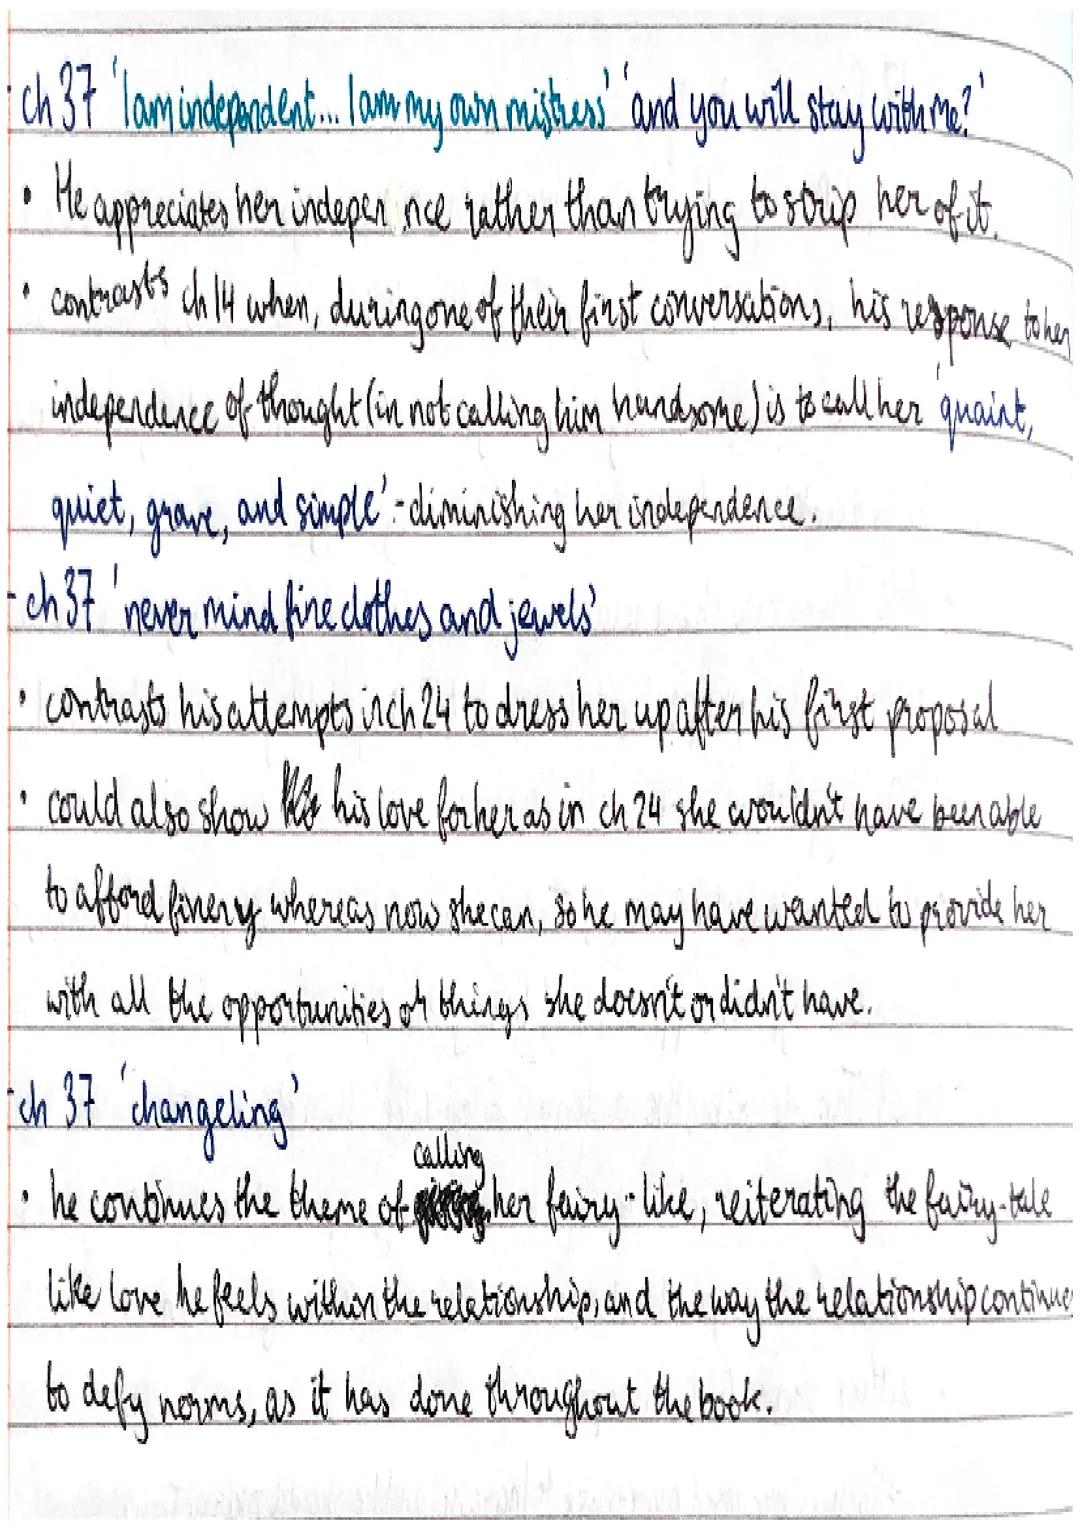 - ch 37 'I am independent... I am my own mistress' 'and you will stay with me?'
• He appreciates her indepen nce rather than trying to strip her of it.
• contrasts ch 14 when, during one of their first conversations, his response to her
independence of thought (in not calling him handsome) is to call her 'quaint,
quiet, grave, and simple' - diminishing her independence.
- ch 37 'never mind fine clothes and jewels'
• contrasts his attempts in ch 24 to dress her up after his first proposal
• could also show his love for her as in ch 24 she wouldn't have been able
to afford finery whereas now she can, so he may have wanted to provide her
with all the opportunities or things she doesn't or didn't have.
- ch 37 'changeling'
• he continues the theme of calling her fairy-like, reiterating the fairy-tale
like love he feels within the relationship, and the way the relationship continues
to defy norms, as it has done throughout the book.